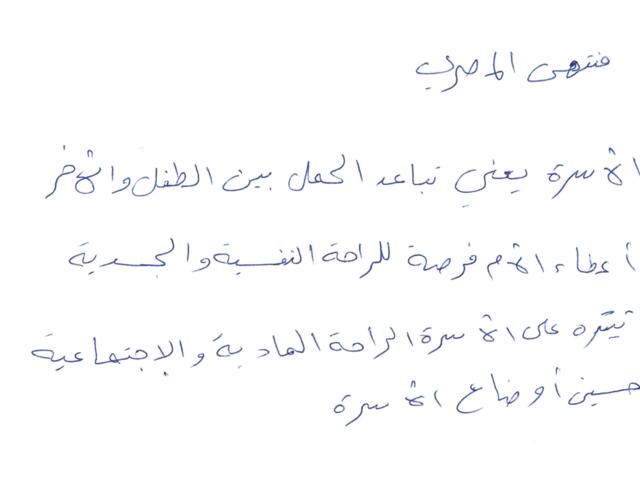 منتهى المصري
الأسرة يعني تباعد الحمل بين الطفل والآخر
أعطاء الأم فرصة للراحة النفسية والجسدية
على الأسرة الراحة المادية والإجتماعية
حسين أوضاع الأسرة